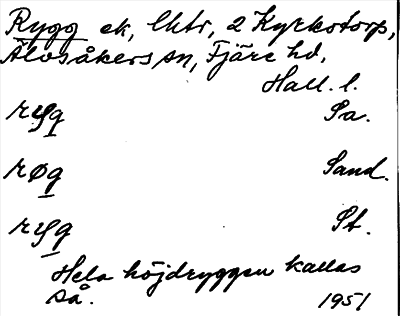 Rygg ek, lktr, 2 Kyrkotorp,
Älvsåkers sn, Fjäre hd,
Hall. l.
Sa.
røg Sand.
St.
Hela höjdryggen kallas
så. 1951